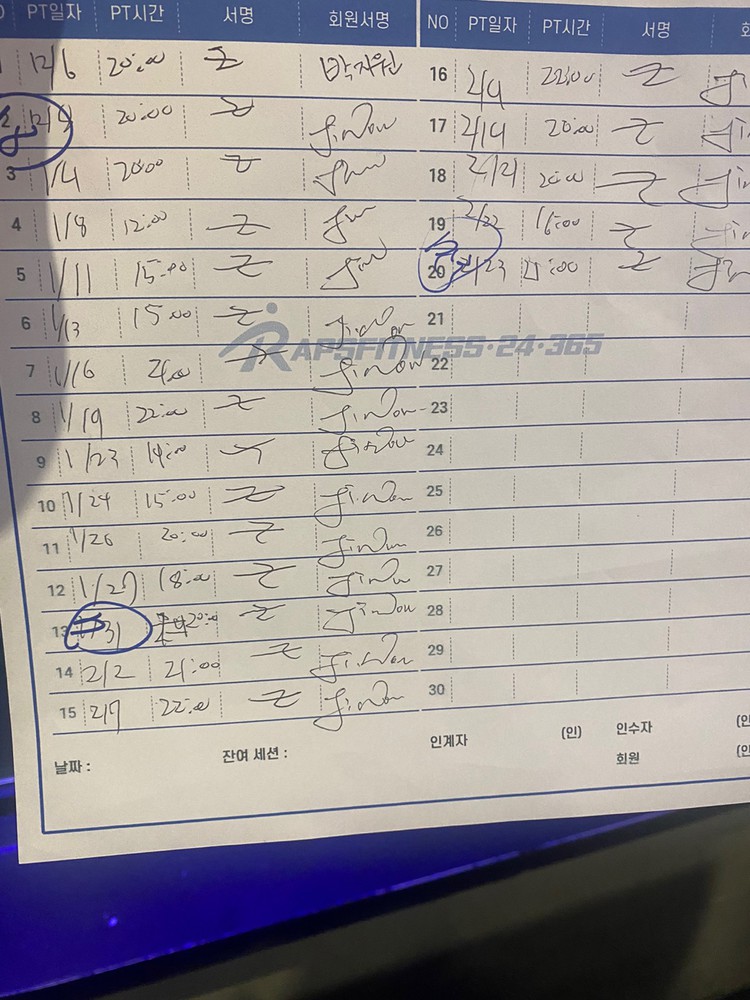 PT일자 PT시간 서명 회원서명
12/6 20:00 박지원
2 20:00 JinWon
3 1/4 20:00
4 1/8 12:00
5 1/11 15:00
6 1/13 15:00 JinWon
7 1/16 JinWon
8 1/19 22:00 JinWon
9 1/23 14:00 JinWon
10 1/24 15:00 JinWon
11 1/26 20:00 JinWon
12 1/27 18:00 JinWon
13 1/31 20:00 JinWon
14 2/2 21:00 JinWon
15 2/7 22:00 JinWon
날짜 : 잔여 세션 :
NO PT일자 PT시간 서명
16 2/9 22:00
17 2/19 20:00
18 2/21 20:00
19 2/22 16:00
20 2/23
21
22
23
24
25
26
27
28
29
30
인계자 (인) 인수자 (인
회원 (인
RAPSFITNESS·24·365